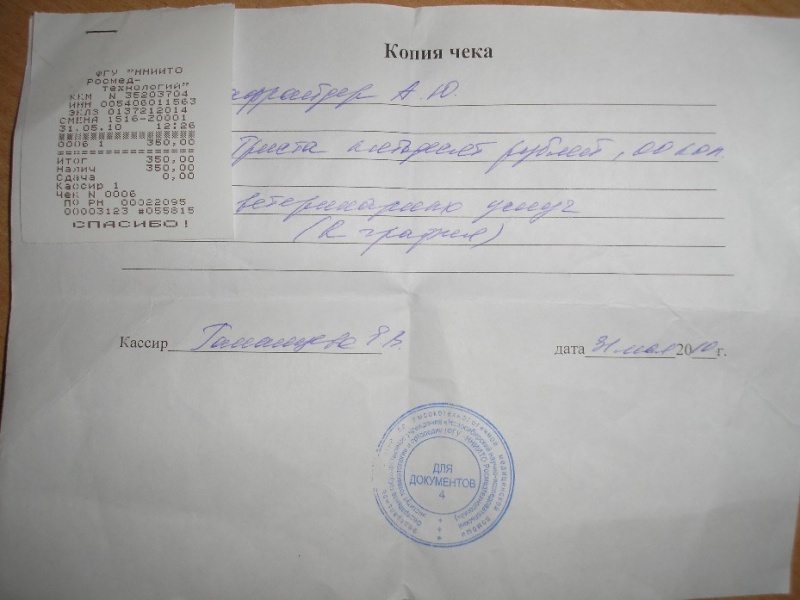 Копия чека
ФГУ "ННИИТО
Росмед-
технологий"
ККМ N 35203704
ИНН 005406011563
ЭКЛЗ 0137212014
СМЕНА 1516-20001
31.05.10 12:26
0006 1 350,00
Итог 350,00
Налич 350,00
Сдача 0,00
Кассир 1
Чек N 0006
ПО РН 00022095
00003123 #055815
СПАСИБО!
А. Ю.
Триста пятьдесят рублей, 00 коп.
ветеринарные услуги
(R графия)
Кассир
дата 31 мая 2010 г.
ДЛЯ
ДОКУМЕНТОВ
4